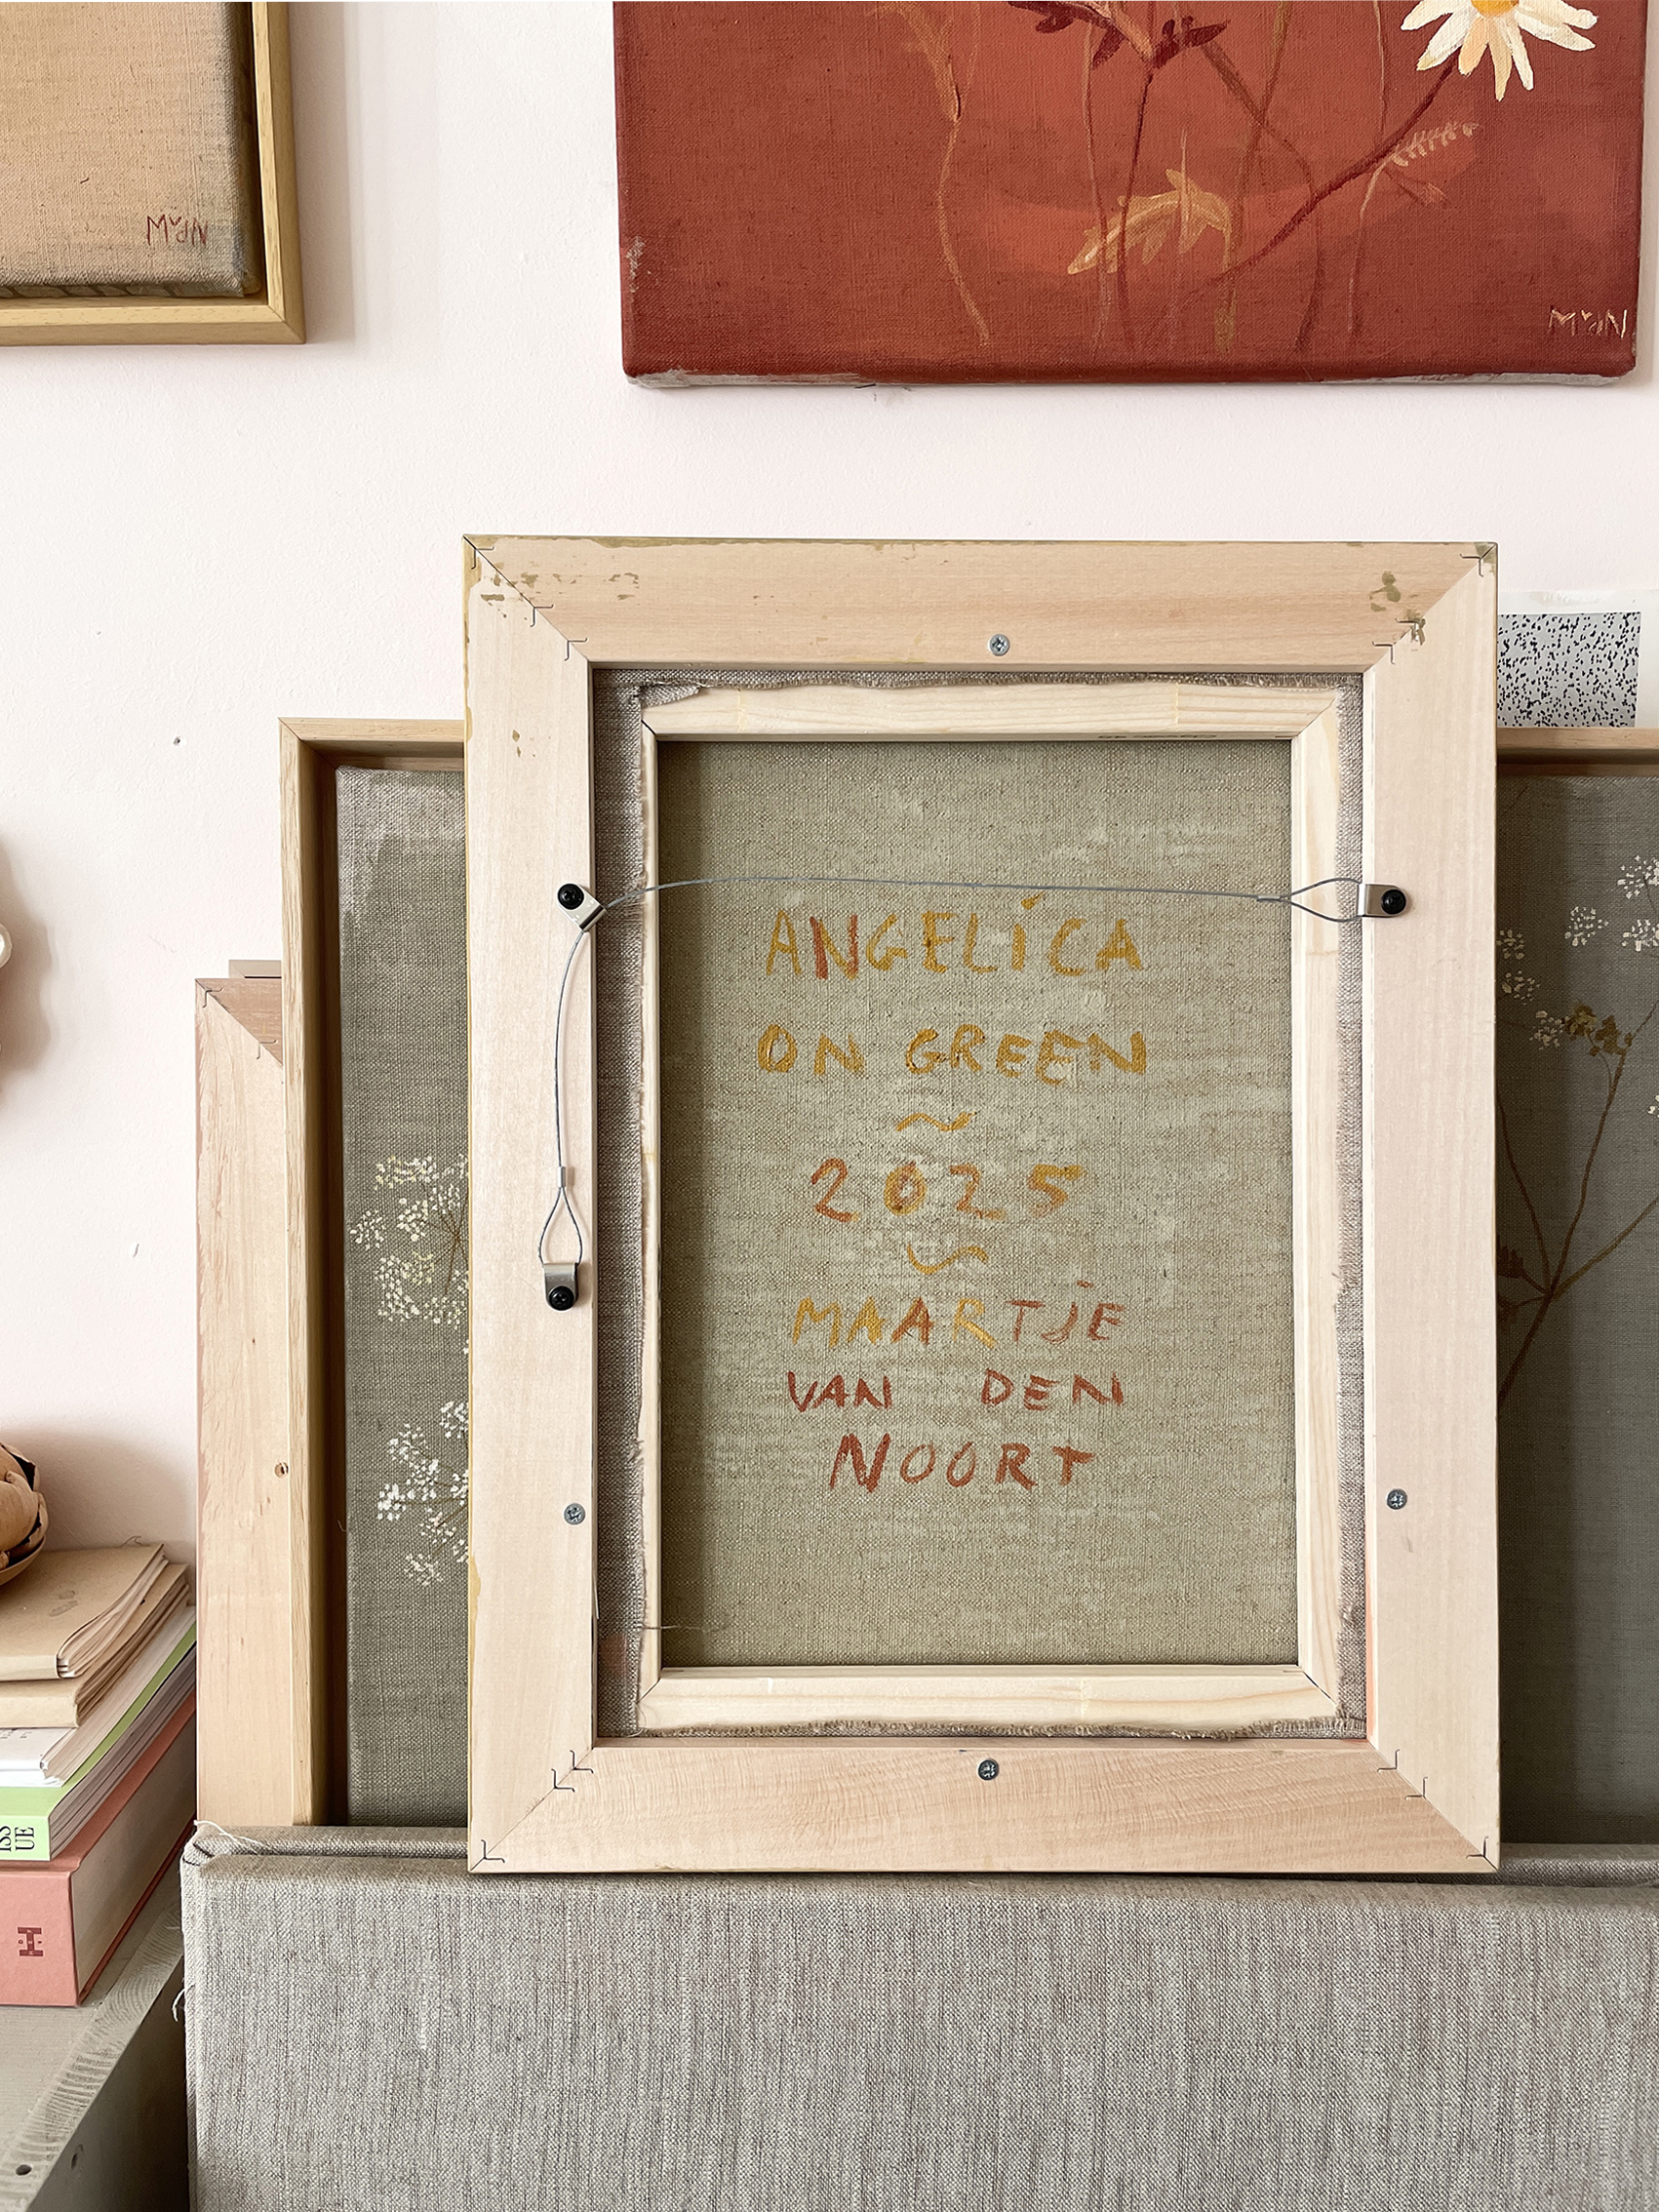 MvdN
MvdN
ANGELiCA
ON GREEN
~
2025
~
MAARTjE
VAN DEN
NOORT
ISS
UE
H